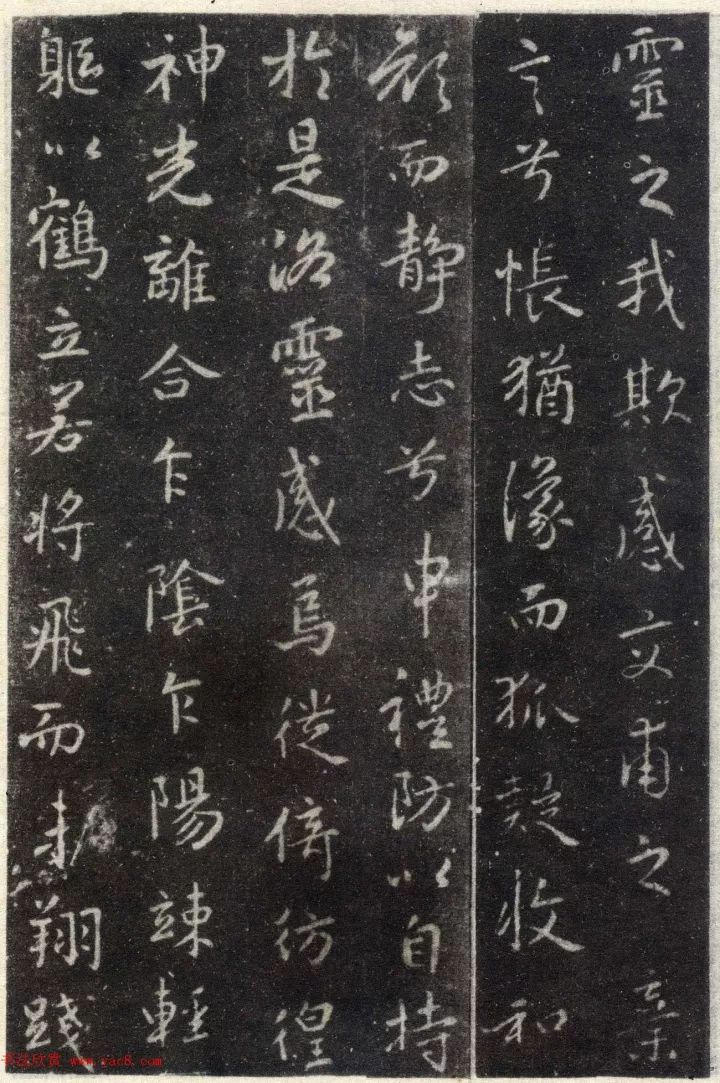 靈之我欺感交甫之棄
言兮悵猶豫而狐疑收和
顏而靜志兮申禮防以自持
於是洛靈感焉徙倚彷徨
神光離合乍陰乍陽竦輕
軀以鶴立若將飛而未翔踐
书法欣赏 www.yac8.com